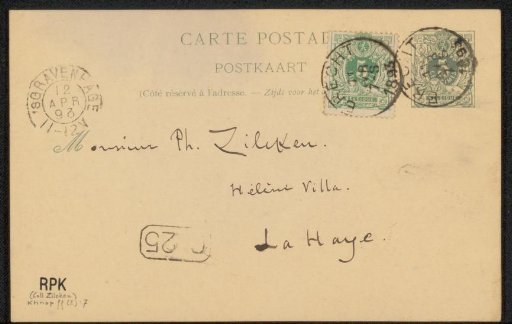 CARTE POSTALE
POSTKAART
(Côté réservé à l'adresse. — Zijds voor het
'SGRAVENHAGE
12
APR
93
11-12
Monsieur Ph. Zilcken.
Hélène Villa.
La Haye.
25
RPK
(Coll Zilcken)